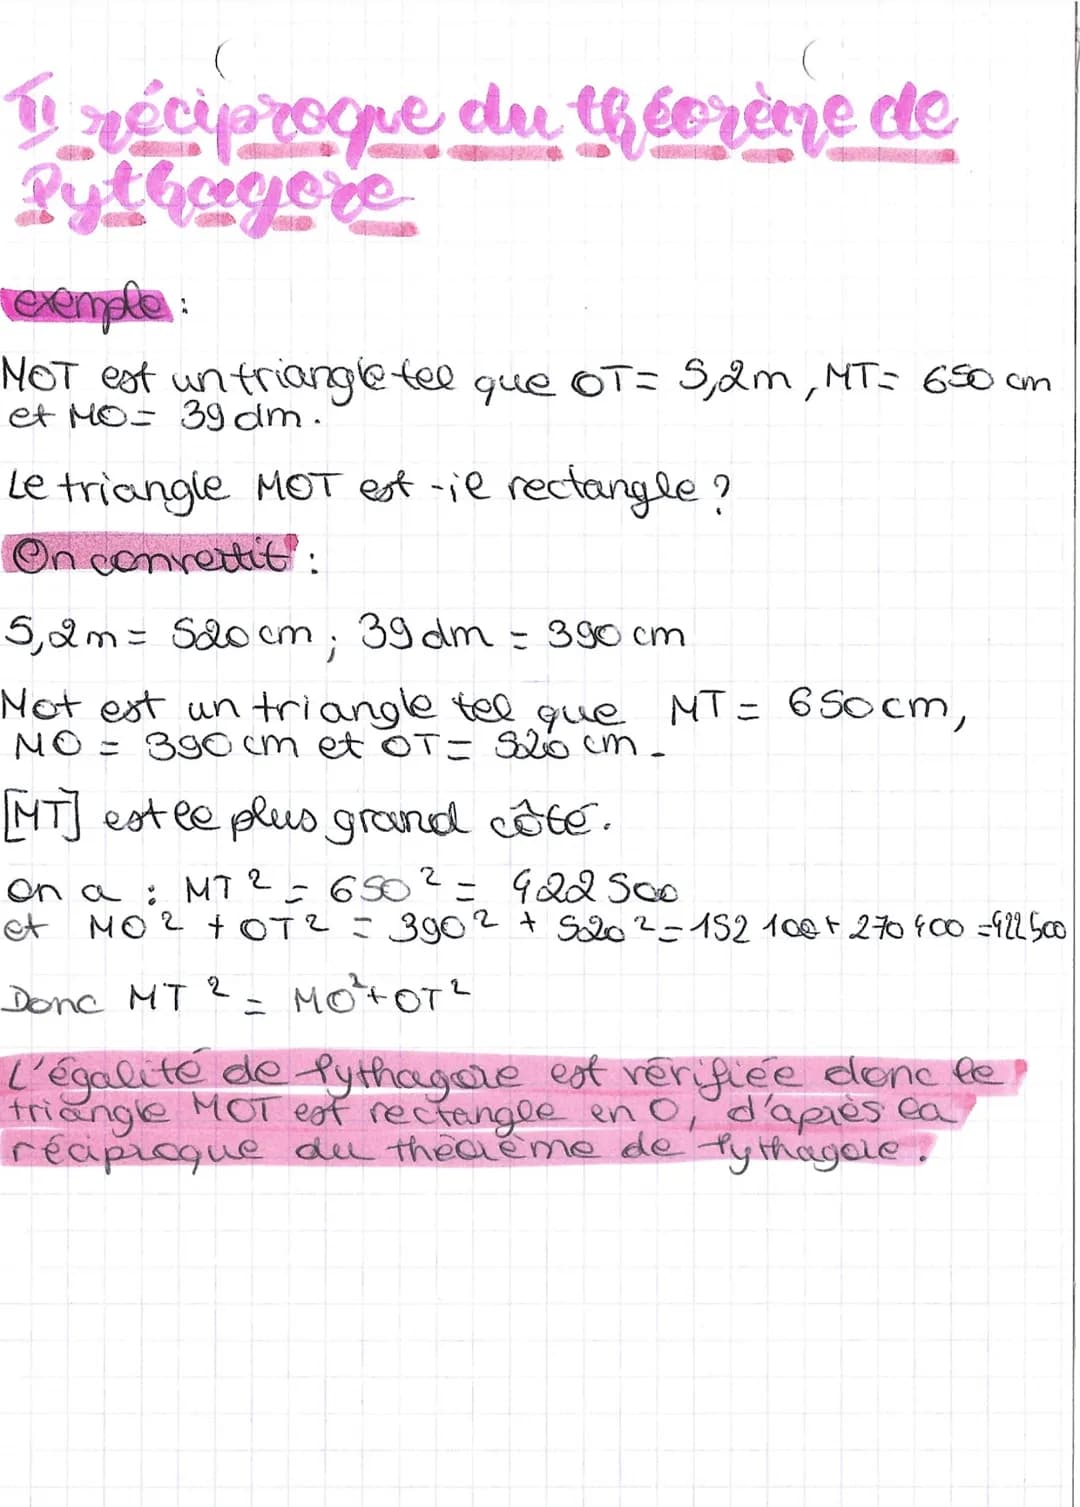 I) réciproque du théorème de
Pythagore
exemple :
MOT est un triangle tel que OT = 5,2m, MT = 650 cm
et MO = 39 dm.
Le triangle MOT est-il rectangle ?
On convertit :
5,2m = 520 cm ; 39 dm = 390 cm
Mot est un triangle tel que MT = 650cm,
MO = 390 cm et OT = 520 cm.
[MT] est le plus grand côté.
On a : MT² = 650² = 422 500
et MO² + OT² = 390² + 520² = 152 100 + 270 400 = 422 500
Donc MT² = MO² + OT²
L'égalité de Pythagore est vérifiée donc le
triangle MOT est rectangle en O, d'après la
réciproque du théorème de Pythagore.